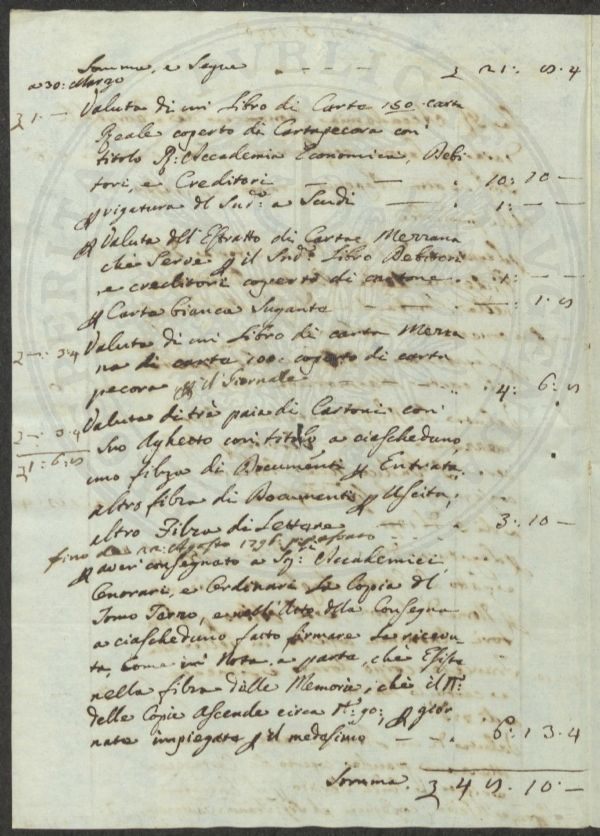 Somma, e Segue - - - - - Ʒ 21: 5.4
a 30: Marzo
Ʒ 1: — Valuta di un Libro di Carta 150 carta
Reale coperto di Cartapecora con
titolo R: Accademia Economica, Debi
tori, e Creditori — — 10: 10 —
P rigatura del Sud.o a Scudi — 1: — —
P Valuta dell'Estratto di Carta Mezzana
che Serve P il Sud.o Libro Debitori
e creditori coperto di cartone . 1: — —
P Carta bianca Sugante — — — : 1. 5
2 —: 3.4 Valuta di un Libro di carta Mezza
na di carta 100: coperto di carta
pecora P il Giornale - - 4: 6: 5
Valuta di trè paia di Cartoni con
2 —: 3.4 Suo Aghetto con titolo a ciascheduno,
Ʒ 1: 6: 5 uno filza di Documenti P Entrata,
altro filza di Documenti P Uscita,
altro Filza di Lettere — — 3: 10 —
fino da 22: Agosto 1796
P aver consegnato a Sg:ri Accademici
Onorari, e Ordinari La Copia del
Tomo Terzo, e nell'Atto della Consegna
a ciascheduno fatto firmare La ricevu
ta, Come in Nota a parte, chè Esiste
nella filza delle Memorie, chè il N.o
delle Copie Ascende circa N.o 90; P gior
nate impiegate P il medesimo — - 6: 13.4
Somma. Ʒ 45. 10. —